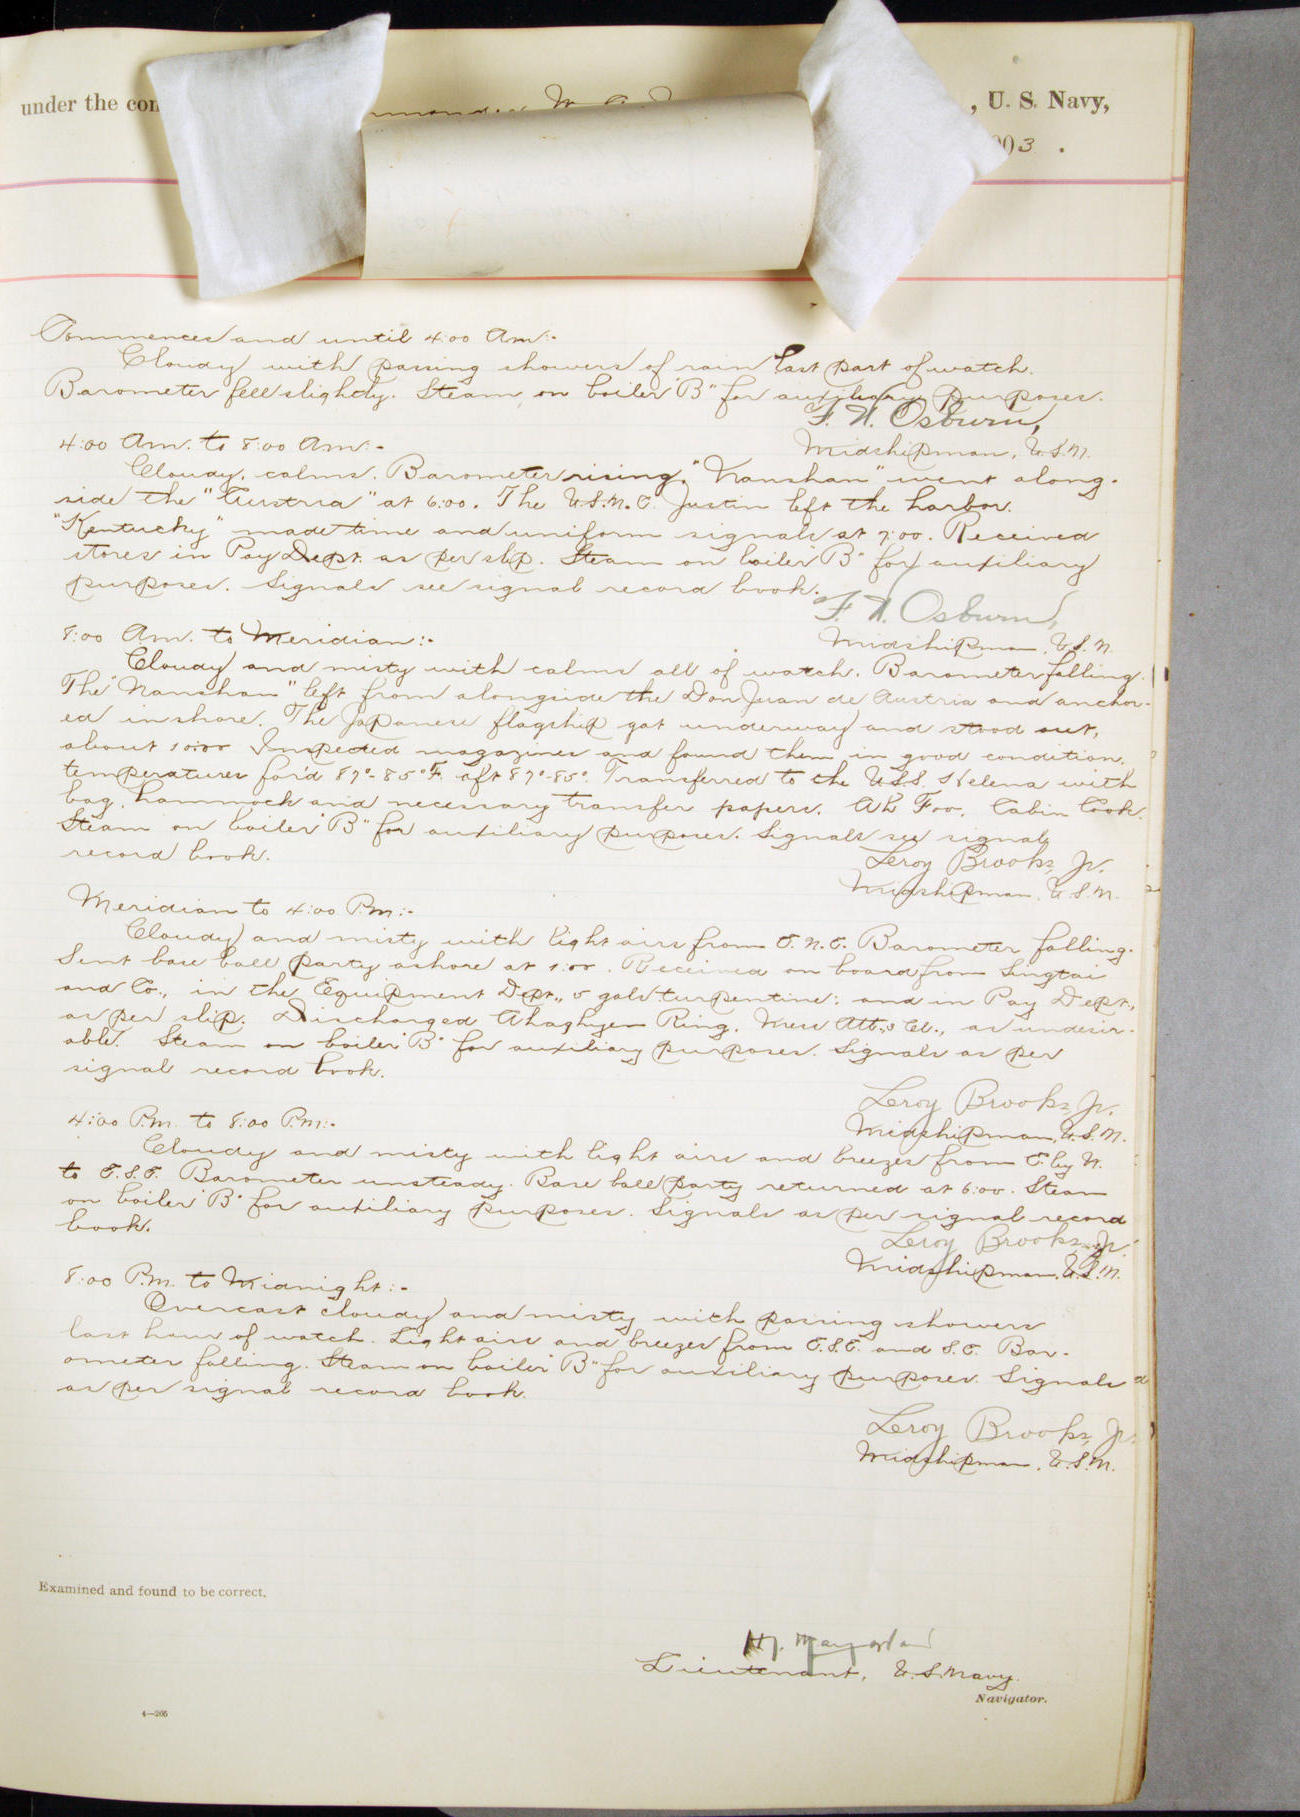 under the com
, U. S. Navy,
003 .
Commences and until 4:00 Am:-
Cloudy with passing showers of rain last part of watch.
Barometer fell slightly. Steam on boiler "B" for auxiliary purposes.
F. N. Osburn,
Midshipman, U.S.N.
4:00 Am. to 8:00 Am:-
Cloudy, calms. Barometer rising. "Nanshan" went along-
side the "Austria" at 6:00. The U.S.N.C. Justin left the harbor.
"Kentucky" made time and uniform signals at 7:00. Received
stores in Pay Dept. as per slip. Steam on boiler "B" for auxiliary
purposes. Signals see signal record book.
F. N. Osburn,
Midshipman, U.S.N.
8:00 Am. to Meridian:-
Cloudy and misty with calms all of watch. Barometer falling.
The "Nanshan" left from alongside the Don Juan de Austria and anchor-
ed inshore. The Japanese flagship got underway and stood out,
about 10:00 Inspected magazines and found them in good condition.
temperatures for'd 87°-85°F. aft 87°-85°. Transferred to the U.S.S. Helena with
bag, hammock and necessary transfer papers. Ah Foo, Cabin Cook.
Steam on boiler "B" for auxiliary purposes. Signals see signal
record book.
Leroy Brooks, Jr.
Midshipman, U.S.N.
Meridian to 4:00 P.m:-
Cloudy and misty with light airs from E.N.E. Barometer falling.
Sent base ball party ashore at 1:00. Received on board from Singtai
and Co., in the Equipment Dept., 5 gals turpentine: and in Pay Dept.,
as per slip. Discharged Ring, Mess Att., 3 Cl., as undesir-
able. Steam on boiler "B" for auxiliary purposes. Signals as per
signal record book.
Leroy Brooks, Jr.
Midshipman, U.S.N.
4:00 P.m. to 8:00 P.m:-
Cloudy and misty with light airs and breezes from E. by N.
to E.S.E. Barometer unsteady. Base ball party returned at 6:00. Steam
on boiler "B" for auxiliary purposes. Signals as per signal record
book.
Leroy Brooks, Jr.
Midshipman, U.S.N.
8:00 P.m. to Midnight:-
Overcast cloudy and misty with passing showers
last hour of watch. Light airs and breezes from E.S.E. and S.E. Bar-
ometer falling. Steam on boiler "B" for auxiliary purposes. Signals
as per signal record book.
Leroy Brooks, Jr.
Midshipman, U.S.N.
Examined and found to be correct.
Lieutenant, U.S. Navy.
Navigator.
4—205